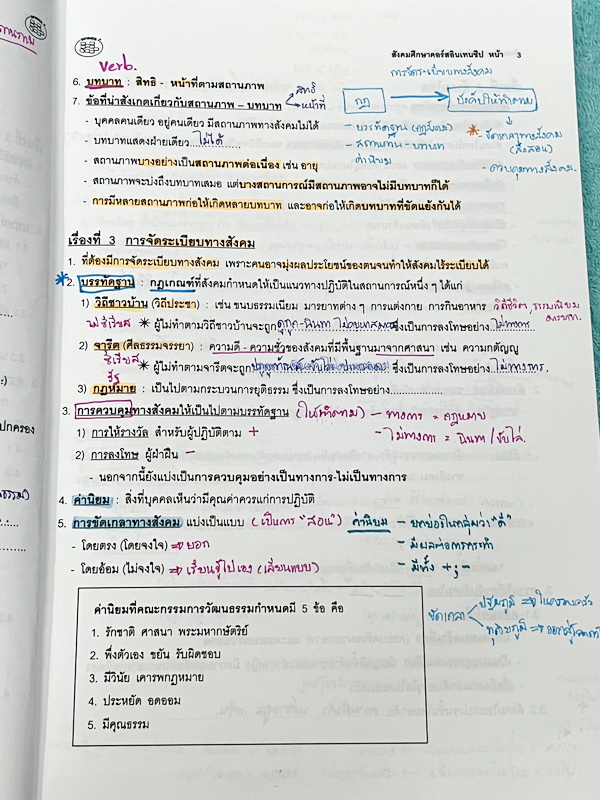 สังคมศึกษาคอร์สอินเทนซีป หน้า 3
verb.
การจัดระเบียบทางสังคม
6. บทบาท : สิทธิ - หน้าที่ตามสถานภาพ
สิทธิ
7. ข้อที่น่าสังเกตเกี่ยวกับสถานภาพ – บทบาท หน้าที่
กฎ
บังคับให้ทำตาม
- บุคคลคนเดียว อยู่คนเดียว มีสถานภาพทางสังคมไม่ได้
- บรรทัดฐาน
- บทบาทแสดงฝ่ายเดียว...ไม่ได้...
- สถานภาพ - บทบาท
ขัดเกลาทางสังคม
(สั่งสอน)
ค่านิยม
- สถานภาพบางอย่างเป็นสถานภาพต่อเนื่อง เช่น อายุ
- ควบคุมทางสังคม
- สถานภาพจะบ่งถึงบทบาทเสมอ แต่บางสถานการณ์มีสถานภาพอาจไม่มีบทบาทก็ได้
- การมีหลายสถานภาพก่อให้เกิดหลายบทบาท และอาจก่อให้เกิดบทบาทที่ขัดแย้งกันได้
เรื่องที่ 3 การจัดระเบียบทางสังคม
1. ที่ต้องมีการจัดระเบียบทางสังคม เพราะคนอาจมุ่งผลประโยชน์ของตนจนทำให้สังคมไร้ระเบียบได้
2. บรรทัดฐาน : กฎเกณฑ์ที่สังคมกำหนดให้เป็นแนวทางปฏิบัติในสถานการณ์หนึ่ง ๆ ได้แก่
1) วิถีชาวบ้าน (วิถีประชา) : เช่น ขนบธรรมเนียม มารยาทต่าง ๆ การแต่งกาย การกินอาหาร วิถีชีวิต, ธรรมเนียม
มารยาท
ไม่ซีเรียส * ผู้ไม่ทำตามวิถีชาวบ้านจะถูก ดูถูก-นินทา ซึ่งเป็นการลงโทษอย่าง ไม่ทางการ
2) จารีต (ศีลธรรมจรรยา) : ความดี - ความชั่วของสังคมที่มีพื้นฐานมาจากศาสนา เช่น ความกตัญญู
ซีเรียส * ผู้ไม่ทำตามจารีตจะถูก ซึ่งเป็นการลงโทษอย่าง ไม่ทางการ
รัฐ
3) กฎหมาย : เป็นไปตามกระบวนการยุติธรรม ซึ่งเป็นการลงโทษอย่าง...................
3. การควบคุมทางสังคมให้เป็นไปตามบรรทัดฐาน (ให้ทำตาม) - ทางการ = กฎหมาย
1) การให้รางวัล สำหรับผู้ปฏิบัติตาม +
- ไม่ทางการ = นินทา / ขับไล่
2) การลงโทษ ผู้ฝ่าฝืน -
- นอกจากนี้ยังแบ่งเป็นการควบคุมอย่างเป็นทางการ-ไม่เป็นทางการ
4. ค่านิยม : สิ่งที่บุคคลเห็นว่ามีคุณค่าควรแก่การปฏิบัติ
5. การขัดเกลาทางสังคม แบ่งเป็นแบบ (เป็นการ "สอน") ค่านิยม - ยกย่องในกลุ่มว่า "ดี"
- โดยตรง (โดยจงใจ) ⇒ บอก
- มีผลต่อการกระทำ
- โดยอ้อม (ไม่จงใจ) ⇒ เรียนรู้ไปเอง (เลียนแบบ)
- มีทั้ง + ; -
ค่านิยมที่คณะกรรมการวัฒนธรรมกำหนดมี 5 ข้อ คือ
ขัดเกลา
ปฐมภูมิ ⇒ ในครอบครัว
ทุติยภูมิ ⇒
1. รักชาติ ศาสนา พระมหากษัตริย์
2. พึ่งตัวเอง ขยัน รับผิดชอบ
3. มีวินัย เคารพกฎหมาย
4. ประหยัด อดออม
5. มีคุณธรรม
ปกครอง